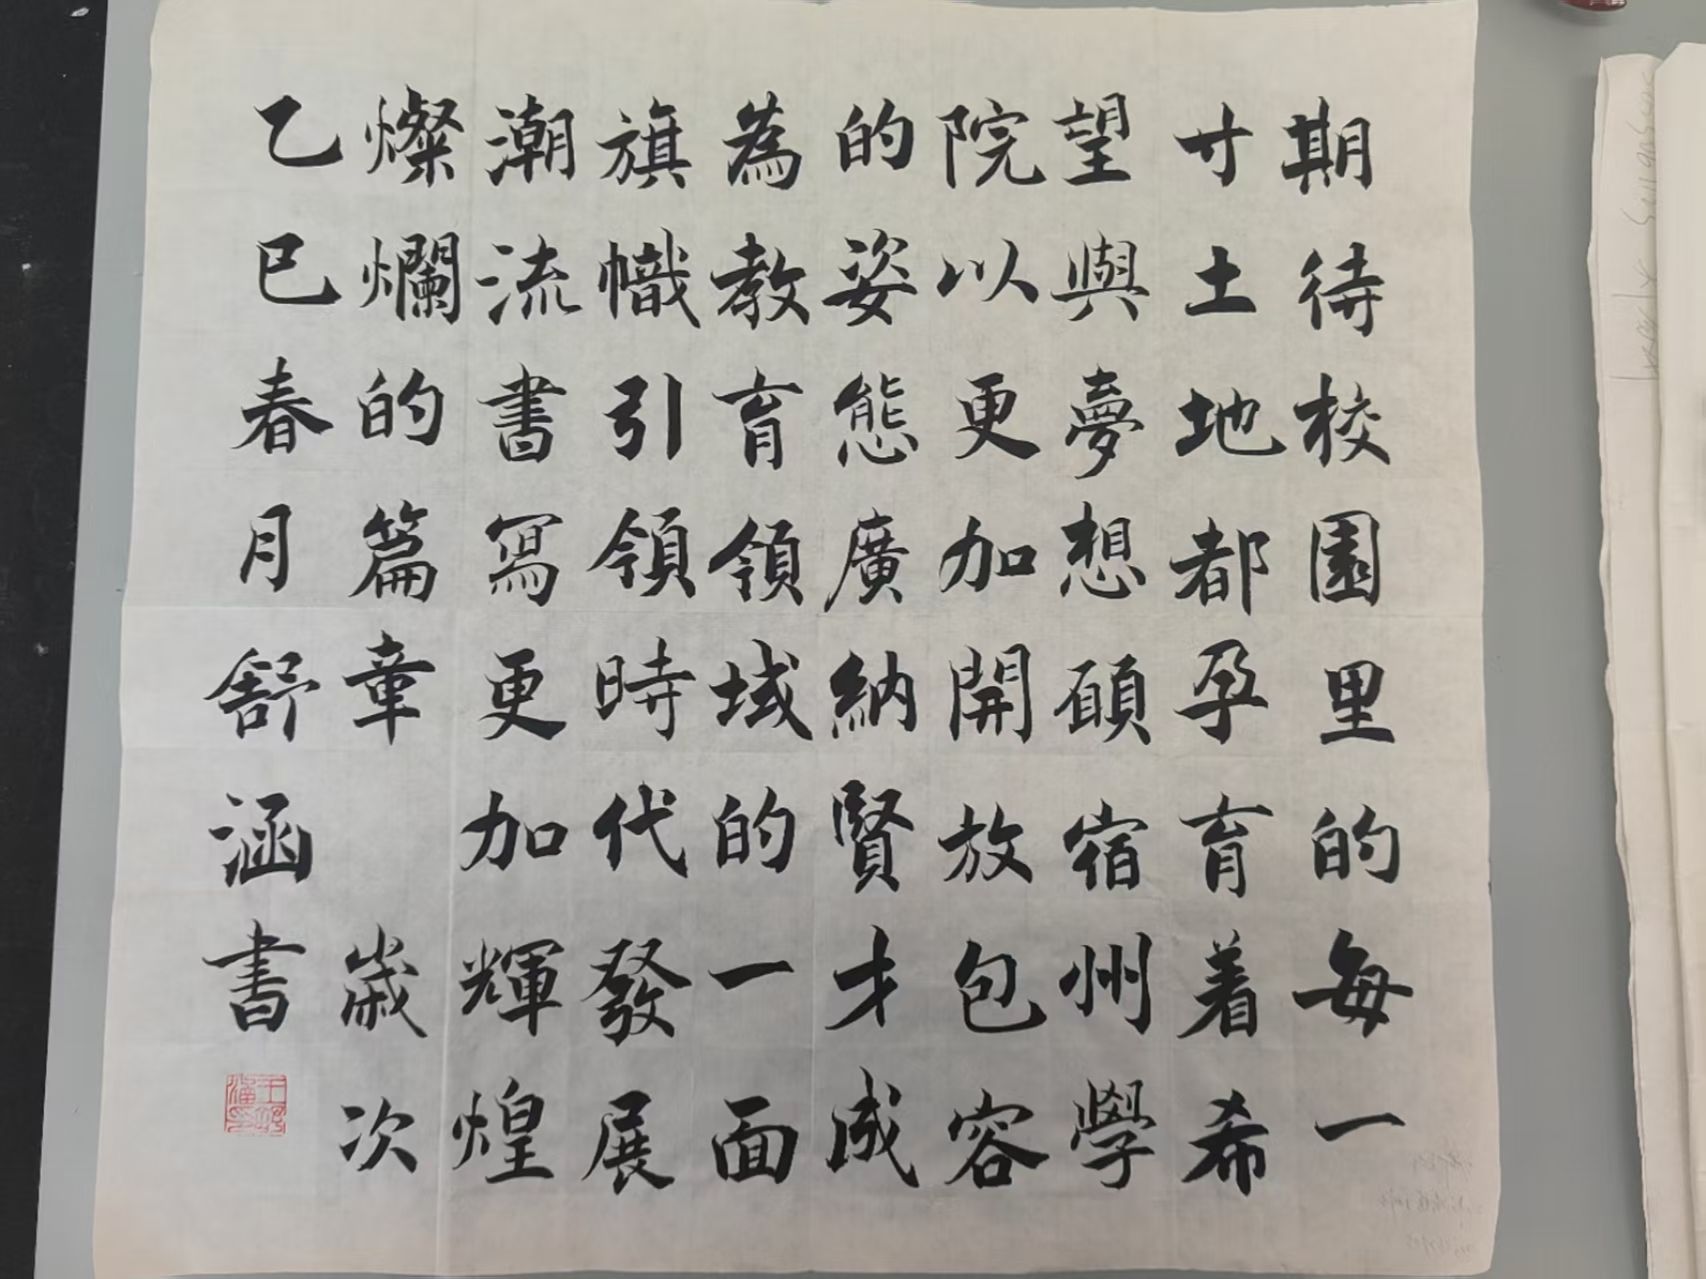 期待校園里的每一
寸土地都孕育着希
望與夢想願宿州學
院以更加開放包容
的姿態廣納賢才成
為教育領域的一面
旗幟引領時代發展
潮流書寫更加輝煌
燦爛的篇章 歲次
乙巳春月舒涵書